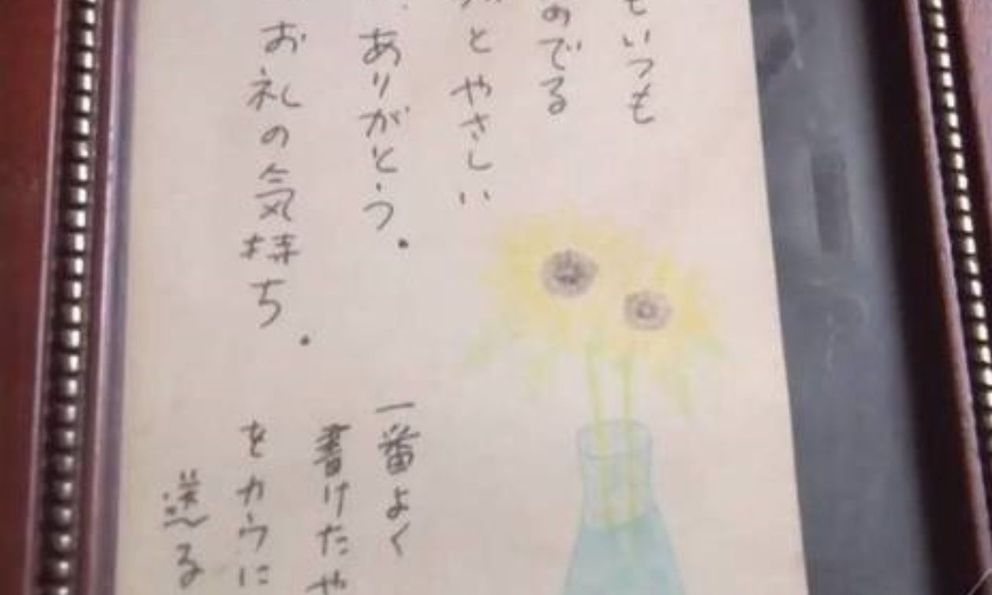 もいつも
のでる
とやさしい
ありがとう。
お礼の気持ち.
一番よく
書けたや
をカウに
送る